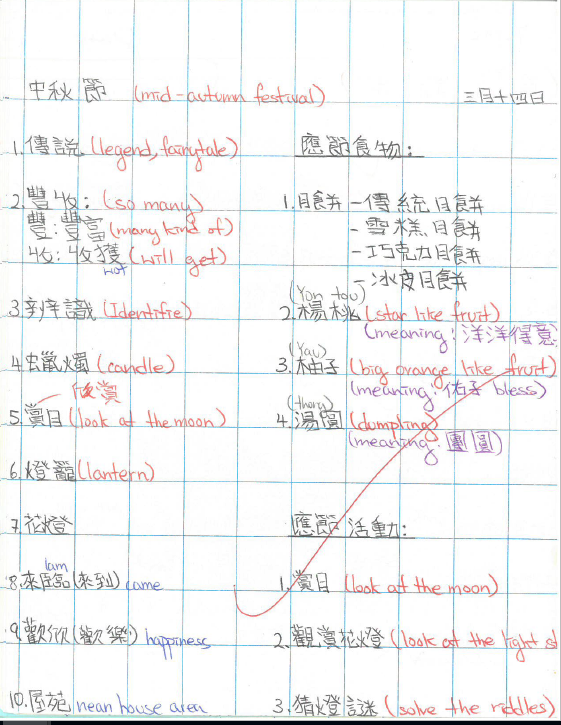 中秋節 (mid-autumn festival) 三月十四日
1. 傳說 (legend, fairytale)
2. 豐收: (so many)
豐: 豐富 (many kind of)
收: 收獲 (will get)
wot
3. 辨識 (Identifie)
4. 蠟燭 (candle)
欣賞
5. 賞月 (look at the moon)
6. 燈籠 (lantern)
7. 花燈
lam
8. 來臨 (來到) came
9. 歡欣 (歡樂) happiness
10. 屋苑 nean house area
應節食物:
1. 月餅 - 傳統月餅
- 雪糕月餅
- 巧克力月餅
- 冰皮月餅
(Yon tou)
2. 楊桃 (star like fruit)
(meaning: 洋洋得意
(Yau)
3. 柚子 (big orange like fruit)
(meaning: 佑子 bless)
4. 湯圓 (dumpling)
(meaning: 團圓)
應節活動:
1. 賞月 (look at the moon)
2. 觀賞花燈 (look at the light
3. 猜燈謎 (solve the riddles)